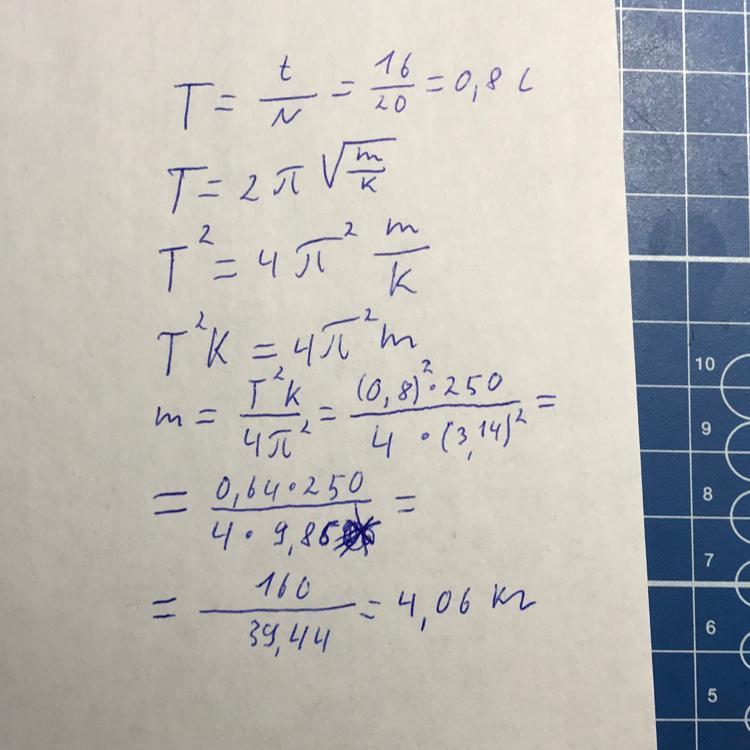 T = t/N = 16/20 = 0,8 с
T = 2π √(m/k)
T² = 4π² m/k
T²k = 4π²m
m = T²k/4π² = (0,8)²·250/4·(3,14)² =
= 0,64·250/4·9,86 =
= 160/39,44 = 4,06 кг
10
9
8
7
6
5